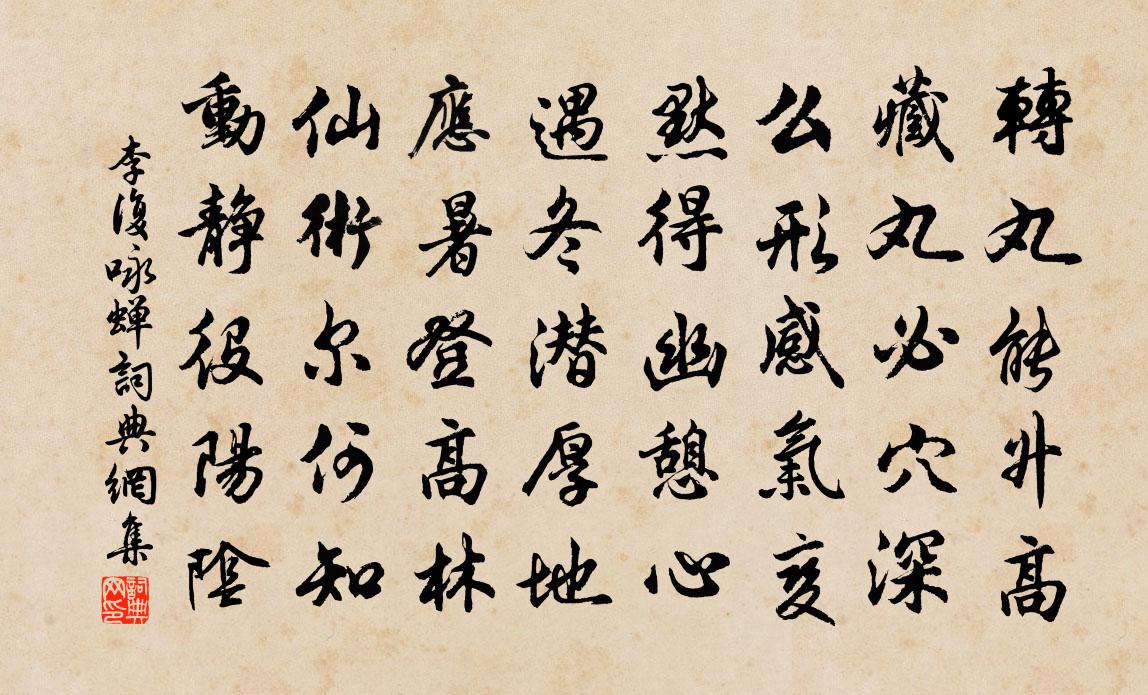 轉丸能升高
藏丸必穴深
么形感氣变
默得幽憩心
遇冬潜厚地
應暑登高林
仙術尔何知
動靜役陽陰
李復咏蝉詞典網集
詞典网印